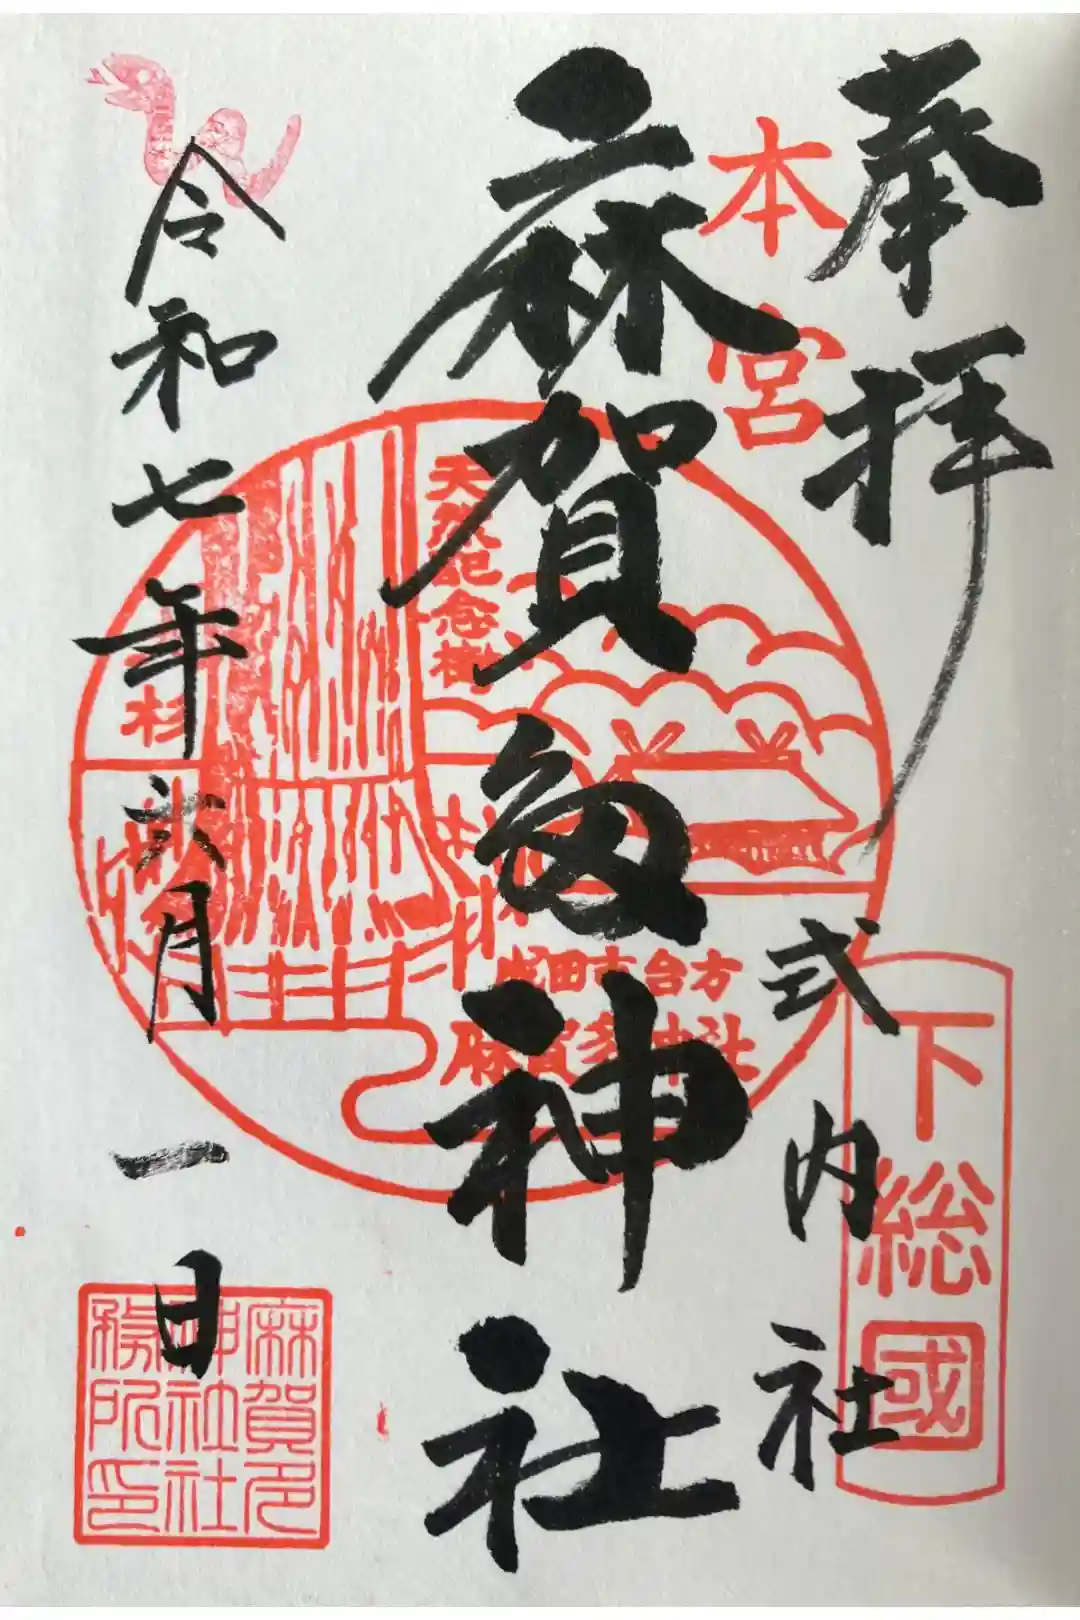 奉拝
本宮
式内社
下総國
麻賀多神社
天然記念樹
杉
成田市台方
麻賀多神社
令和七年六月一日
麻賀多
神社社
務所印